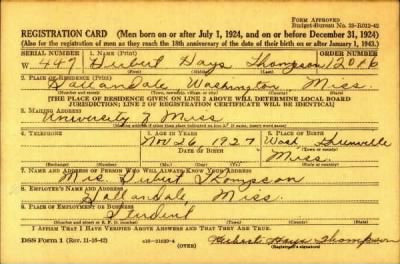 FORM APPROVED
Budget-Bureau No. 33-R012-42
REGISTRATION CARD (Men born on or after July 1, 1924, and on or before December 31, 1924)
(Also for the registration of men as they reach the 18th anniversary of the date of their birth on or after January 1, 1943.)
SERIAL NUMBER 1. NAME (Print) ORDER NUMBER
W 447 Hubert Hays Thompson 12086
(First) (Middle) (Last)
2. PLACE OF RESIDENCE (Print)
Hollandale Washington Miss.
(Number and street) (Town, township, village, or city) (County) (State)
[THE PLACE OF RESIDENCE GIVEN ON LINE 2 ABOVE WILL DETERMINE LOCAL BOARD
JURISDICTION; LINE 2 OF REGISTRATION CERTIFICATE WILL BE IDENTICAL]
3. MAILING ADDRESS
University of Miss
[Mailing address if other than place indicated on line 2. If same, insert word same]
4. TELEPHONE 5. AGE IN YEARS 6. PLACE OF BIRTH
Nov 26 1927 Wash Greenville
DATE OF BIRTH Miss.
7. NAME AND ADDRESS OF PERSON WHO WILL ALWAYS KNOW YOUR ADDRESS
Mrs Hubert Thompson
8. EMPLOYER'S NAME AND ADDRESS
Hollandale, Miss.
9. PLACE OF EMPLOYMENT OR BUSINESS
Student
(Number and street or R. F. D. number) (Town) (County) (State)
I AFFIRM THAT I HAVE VERIFIED ABOVE ANSWERS AND THAT THEY ARE TRUE.
DSS Form 1 (Rev. 11-16-42) (OVER) Hubert Hays Thompson
(Registrant's signature)